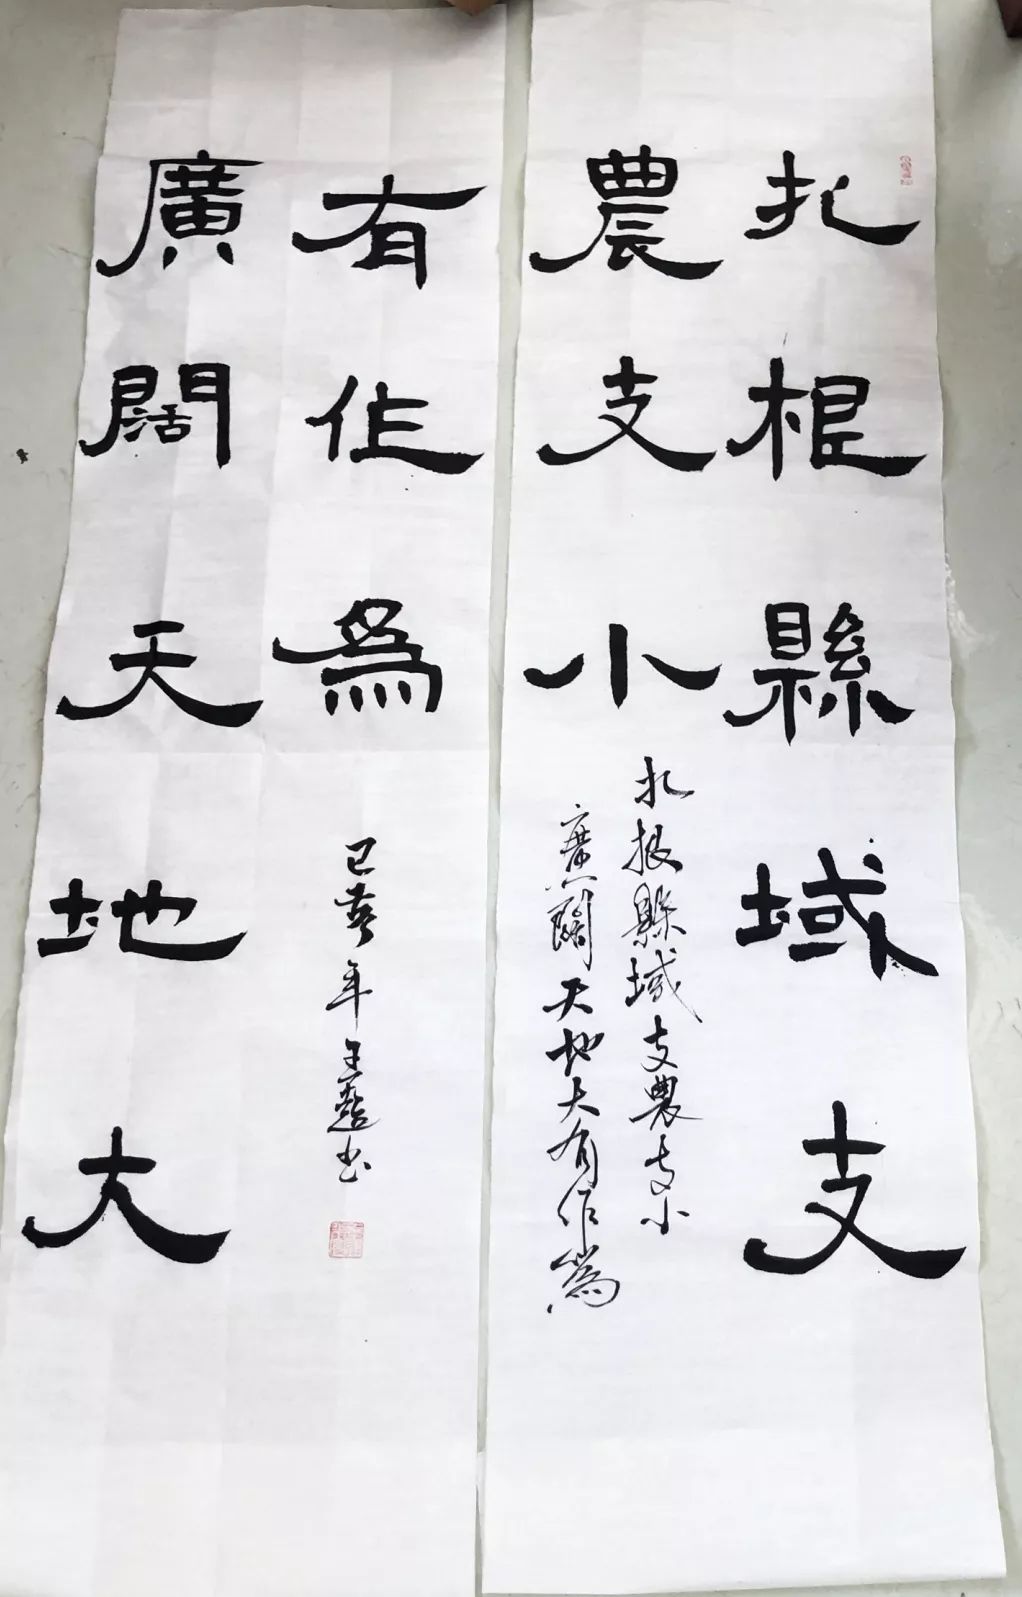 扎根縣域支
農支小
扎根縣域支農支小
廣闊天地大有作為
廣闊天地大
有作為
己亥年王書